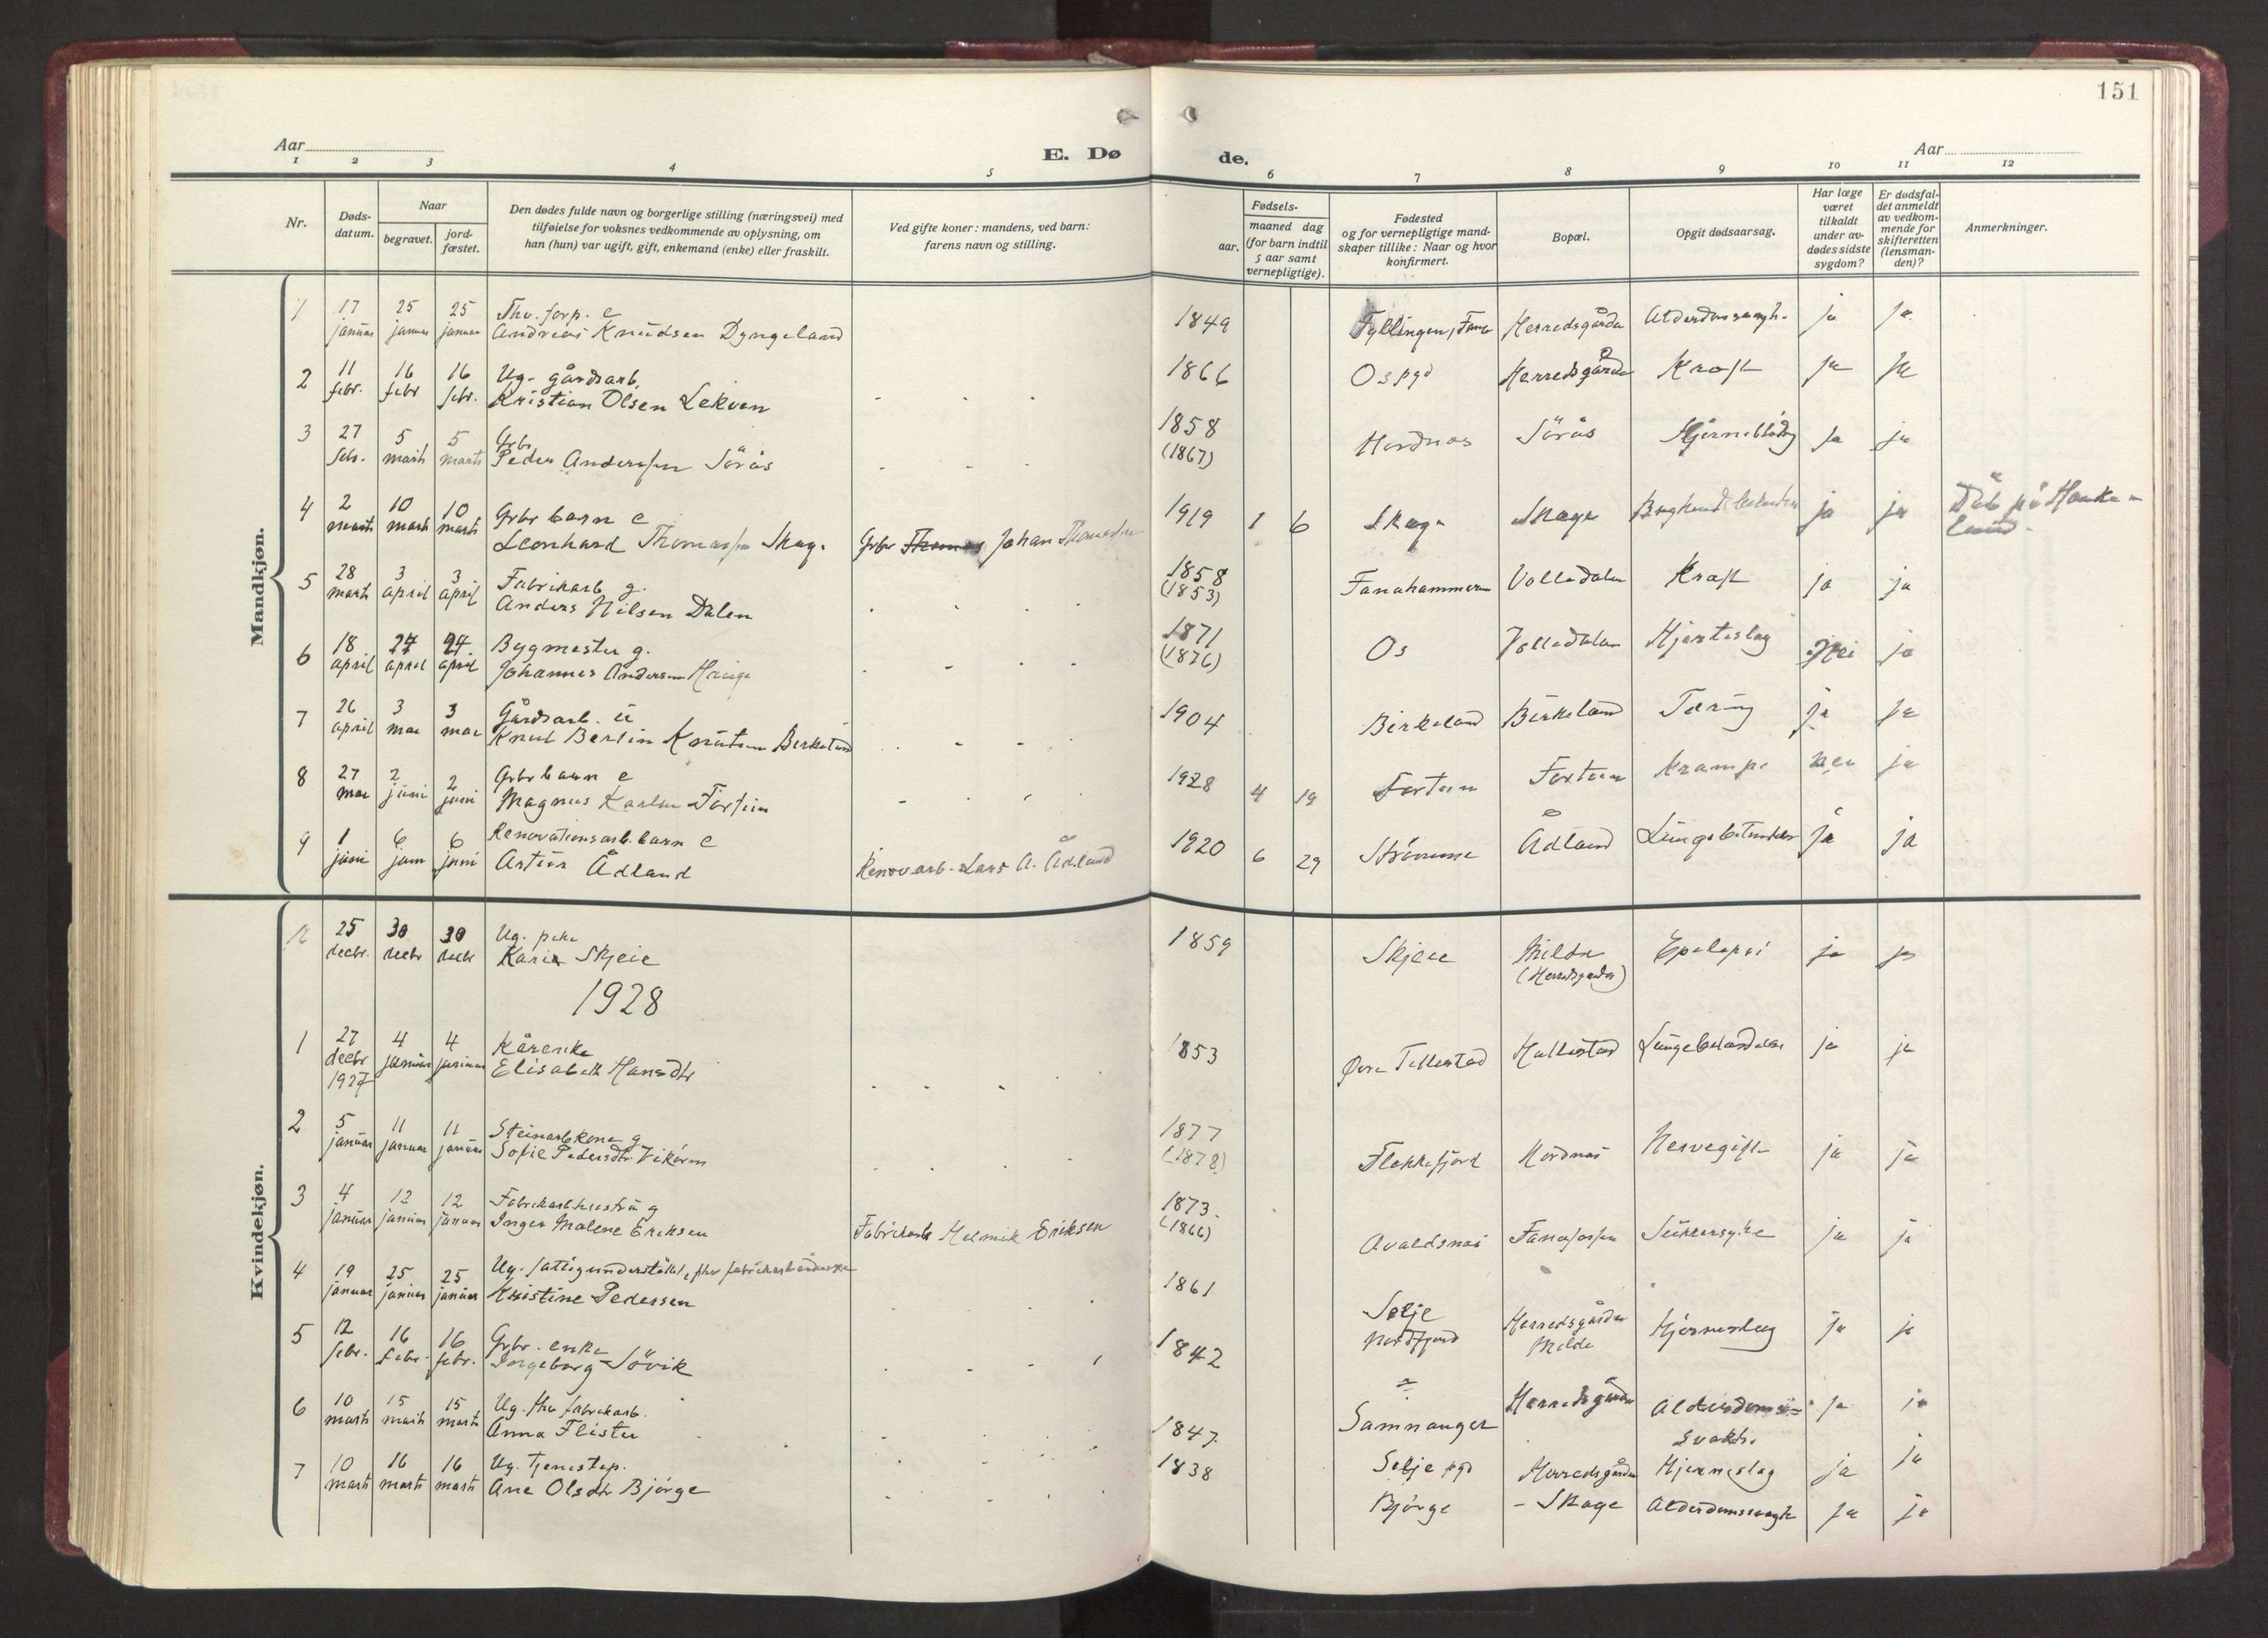 151
Aar
E. Dø
de.
Aar
1 2 3 4 5 6 7 8 9 10 11 12
Nr.
Døds-
datum.
Naar
begravet.
jord-
fæstet.
Den dødes fulde navn og borgerlige stilling (næringsvei) med
tilføielse for voksnes vedkommende av oplysning, om
han (hun) var ugift, gift, enkemand (enke) eller fraskilt.
Ved gifte koner: mandens, ved barn:
farens navn og stilling.
Fødsels-
aar.
maaned dag
(for barn indtil
5 aar samt
vernepligtige).
Fødested
og for vernepligtige mand-
skaper tillike: Naar og hvor
konfirmert.
Bopæl.
Opgit dødsaarsag.
Har læge
været
tilkaldt
under av-
dødes sidste
sygdom?
Er dødsfal-
det anmeldt
av vedkom-
mende for
skifteretten
(lensman-
den)?
Anmerkninger.
Mandkjøn.
1 17 25 25 Thv. forp. e 1849 Fyllingen, Fana Herredsgården ja ja
januar januar januar Andreas Knudsen Dyngeland
2 11 16 16 Ug. gårdsarb. 1866 Os pgd Herredsgården Kræft ja ja
febr. febr febr. Kristian Olsen Lekven
3 27 5 5 Gbr 1858 Hordnes Sörås ja ja
febr. marts marts Peder Anderssen Sörås (1867)
4 2 10 10 Gbr barn e 1919 1 6 Skage Skage ja ja Död på Hauke-
marts marts marts Leonhard Skage Gbr Johan land.
5 28 3 3 Fabrikarb g. 1858 Fanahammeren Volledalen Kræft ja ja
marts april april Anders Nilsen Dalen (1853)
6 18 24 24. Bygmester g. 1871 Os Volledalen Hjerteslag nei ja
april april april Johannes Andersen Hauge (1876)
7 26 3 3 Gårdsarb. ü 1904 Birkeland Birkeland Tæring ja ja
april mai mai Knut Berlin Knutsen Birkeland
8 27 2 2 Gbr barn e 1928 4 19 Fortun Fortun Krampe nei ja
mai juni juni Magnus Fortun
9 1 6 6 Renovationsarb. barn e 1920 6 29 Strömme Ådland Lungebetændelse ja ja
juni juni juni Artur Ådland Renovarb. Lars A. Ådland
Kvindekjøn.
12 25 30 30 Ug. pike 1859 Skjeie Milde Epelepsi ja ja
decbr. decbr decbr Kari Skjeie (Herredsgården)
1928
1 27 4 4 Kårenke 1853 Övre Titlestad Hallestad Lungebetændelse ja ja
decbr januar januar Elisabeth Hansdtr
1927
2 5 11 11 Steinarb kone g 1877 Flekkefjord Hordnes ja ja
januar januar januar Sofie Pedersdtr Vikören (1878)
3 4 12 12 g 1873. Avaldsnes Fanafossen Sukkersyke ja ja
januar januar januar Inger Malene Eriksen Fabrikarb Helmik Eriksen (1866)
4 19 25 25 Ug. fattigunderstöttet, fhv fabrikarbeiderske 1861 Selje Herredsgården Hjerneslag ja ja
januar januar januar Kristine Pedersen Nordfjord Milde
5 12 16 16 Gbr. enke 1842 ? Herredsgården Alderdoms= ja ja
febr. febr. febr. Ingeborg Sövik Samnanger svakh.
6 10 15 15 Ug. fhv fabrikarb. 1847. Selje pgd Herredsgården Hjerneslag ja ja
marts marts marts Anna Flister
7 10 16 16 Ug. Tjenestep. 1838 Björge - Skage Alderdomssvagh ja ja
marts marts marts Ane Olsdtr Björge